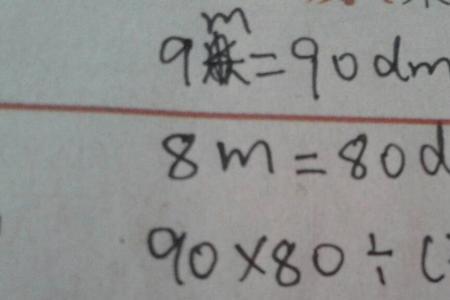 9m=90dm
8m=80d
90×80÷(